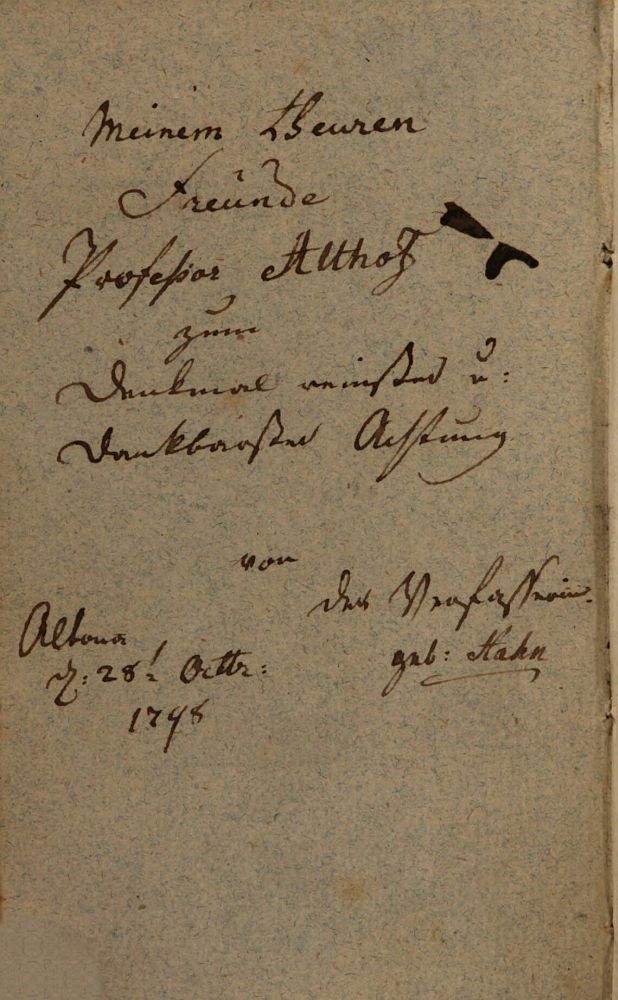 Meinem theuren
Freunde
Profeßor Althof
zum
Denkmal reinster u:
Dankbarster Achtung
von
der Verfasserin.
geb: Hahn
Altona
d: 28t Octbr:
1798